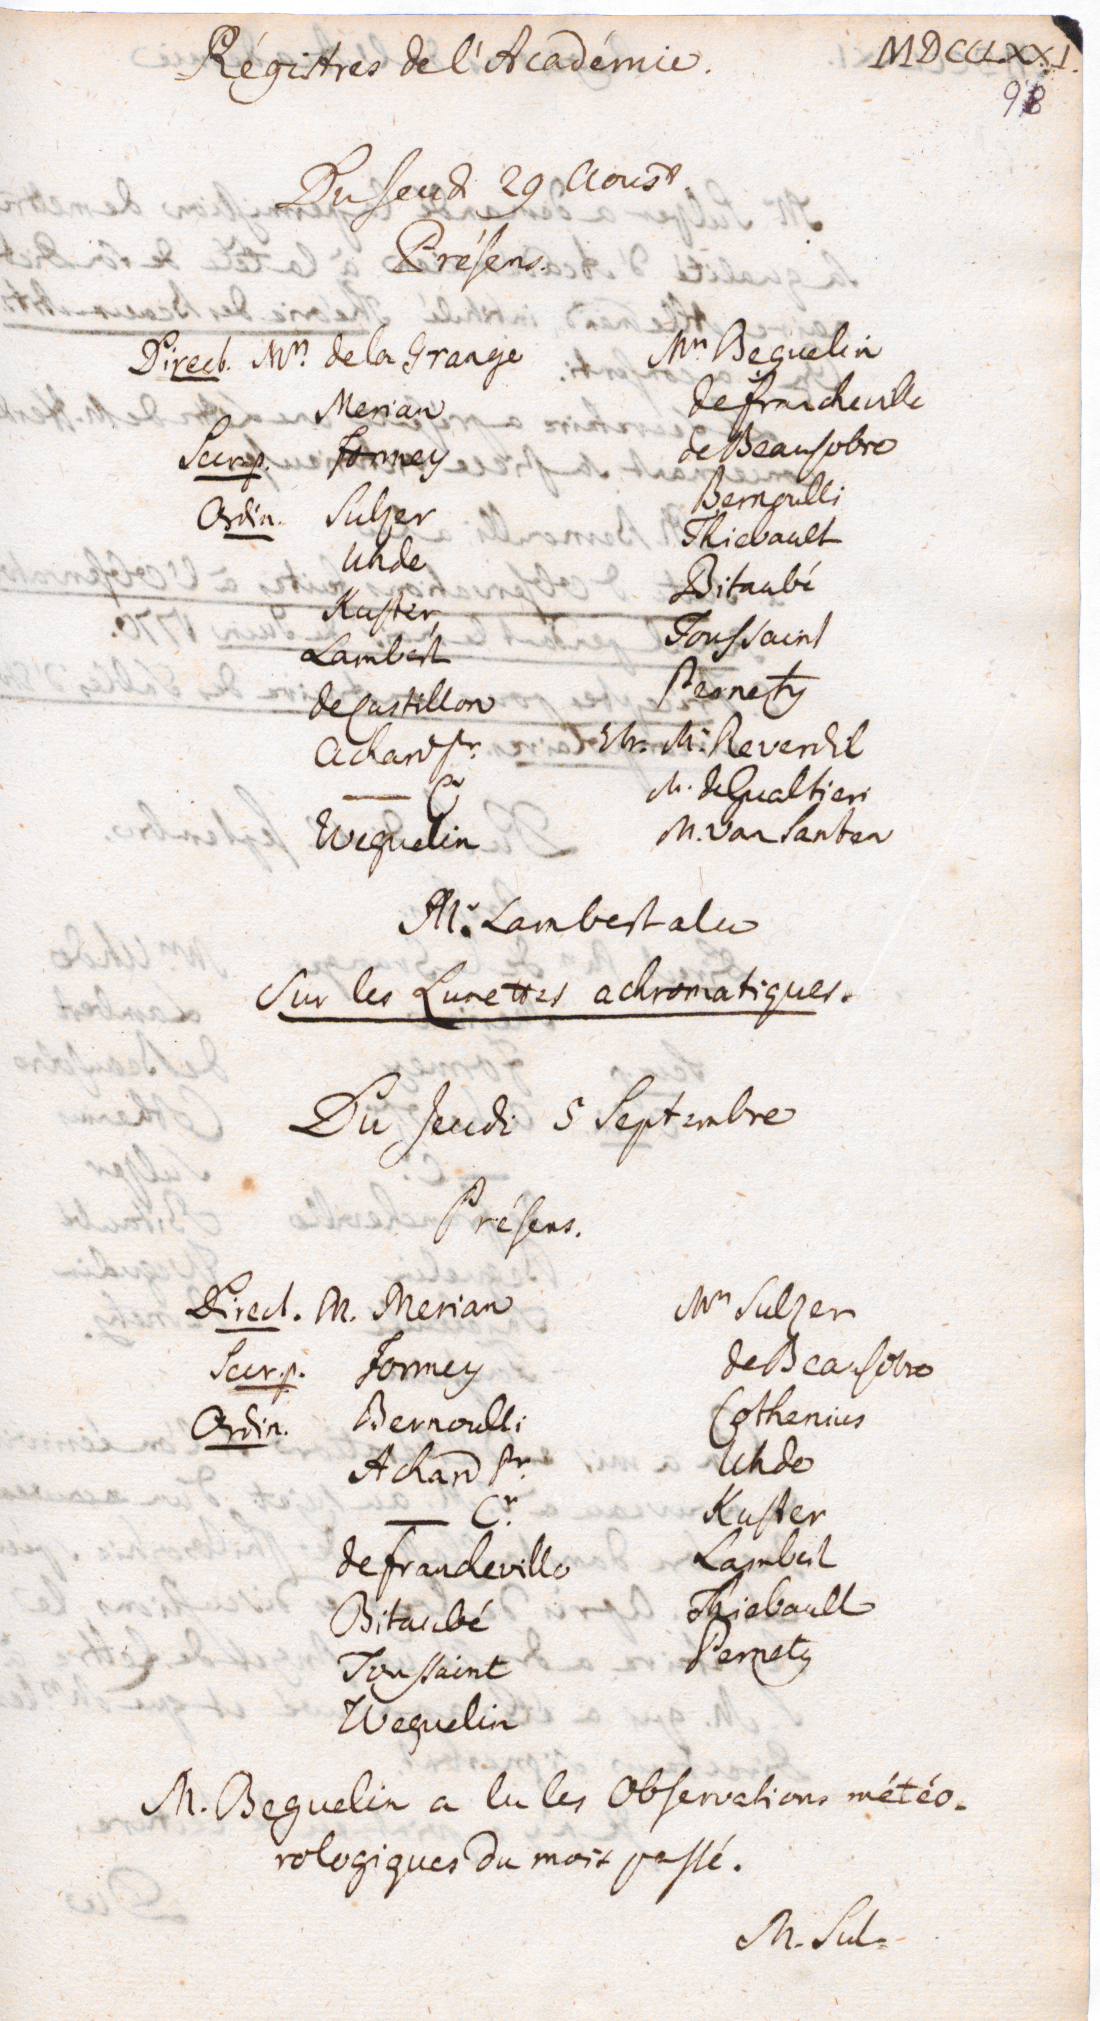 Régistres de l'Académie. MDCCLXXI.
98
Du Jeudi 29 Aoust
Présens.
Direct. Mrs. de la Grange
Merian
Secr.p. Formey
Ordin. Sulzer
Uhde
Kuster
Lambert
de Castillon
Achard pr.
Weguelin
Mrs Beguelin
de francheville
de Beausobre
Bernoulli
Thiebault
Bitaubé
Toussaint
Pernety
Etr. Mr. Reverdil
M. de Gualtieri
M. van Santen
Mr. Lambert a lu
Sur les Lunettes achromatiques.
Du Jeudi 5 Septembre
Présens.
Direct. M. Merian
Secr.p. Formey
Ordin. Bernoulli
Achard Pr.
— Cr.
de francheville
Bitaubé
Toussaint
Weguelin
Mrs Sulzer
de Beausobre
Cothenius
Uhde
Kuster
Lambert
Thiebault
Pernety
M. Beguelin a lu les Observations météo-
rologiques du mois passé.
M. Sul-